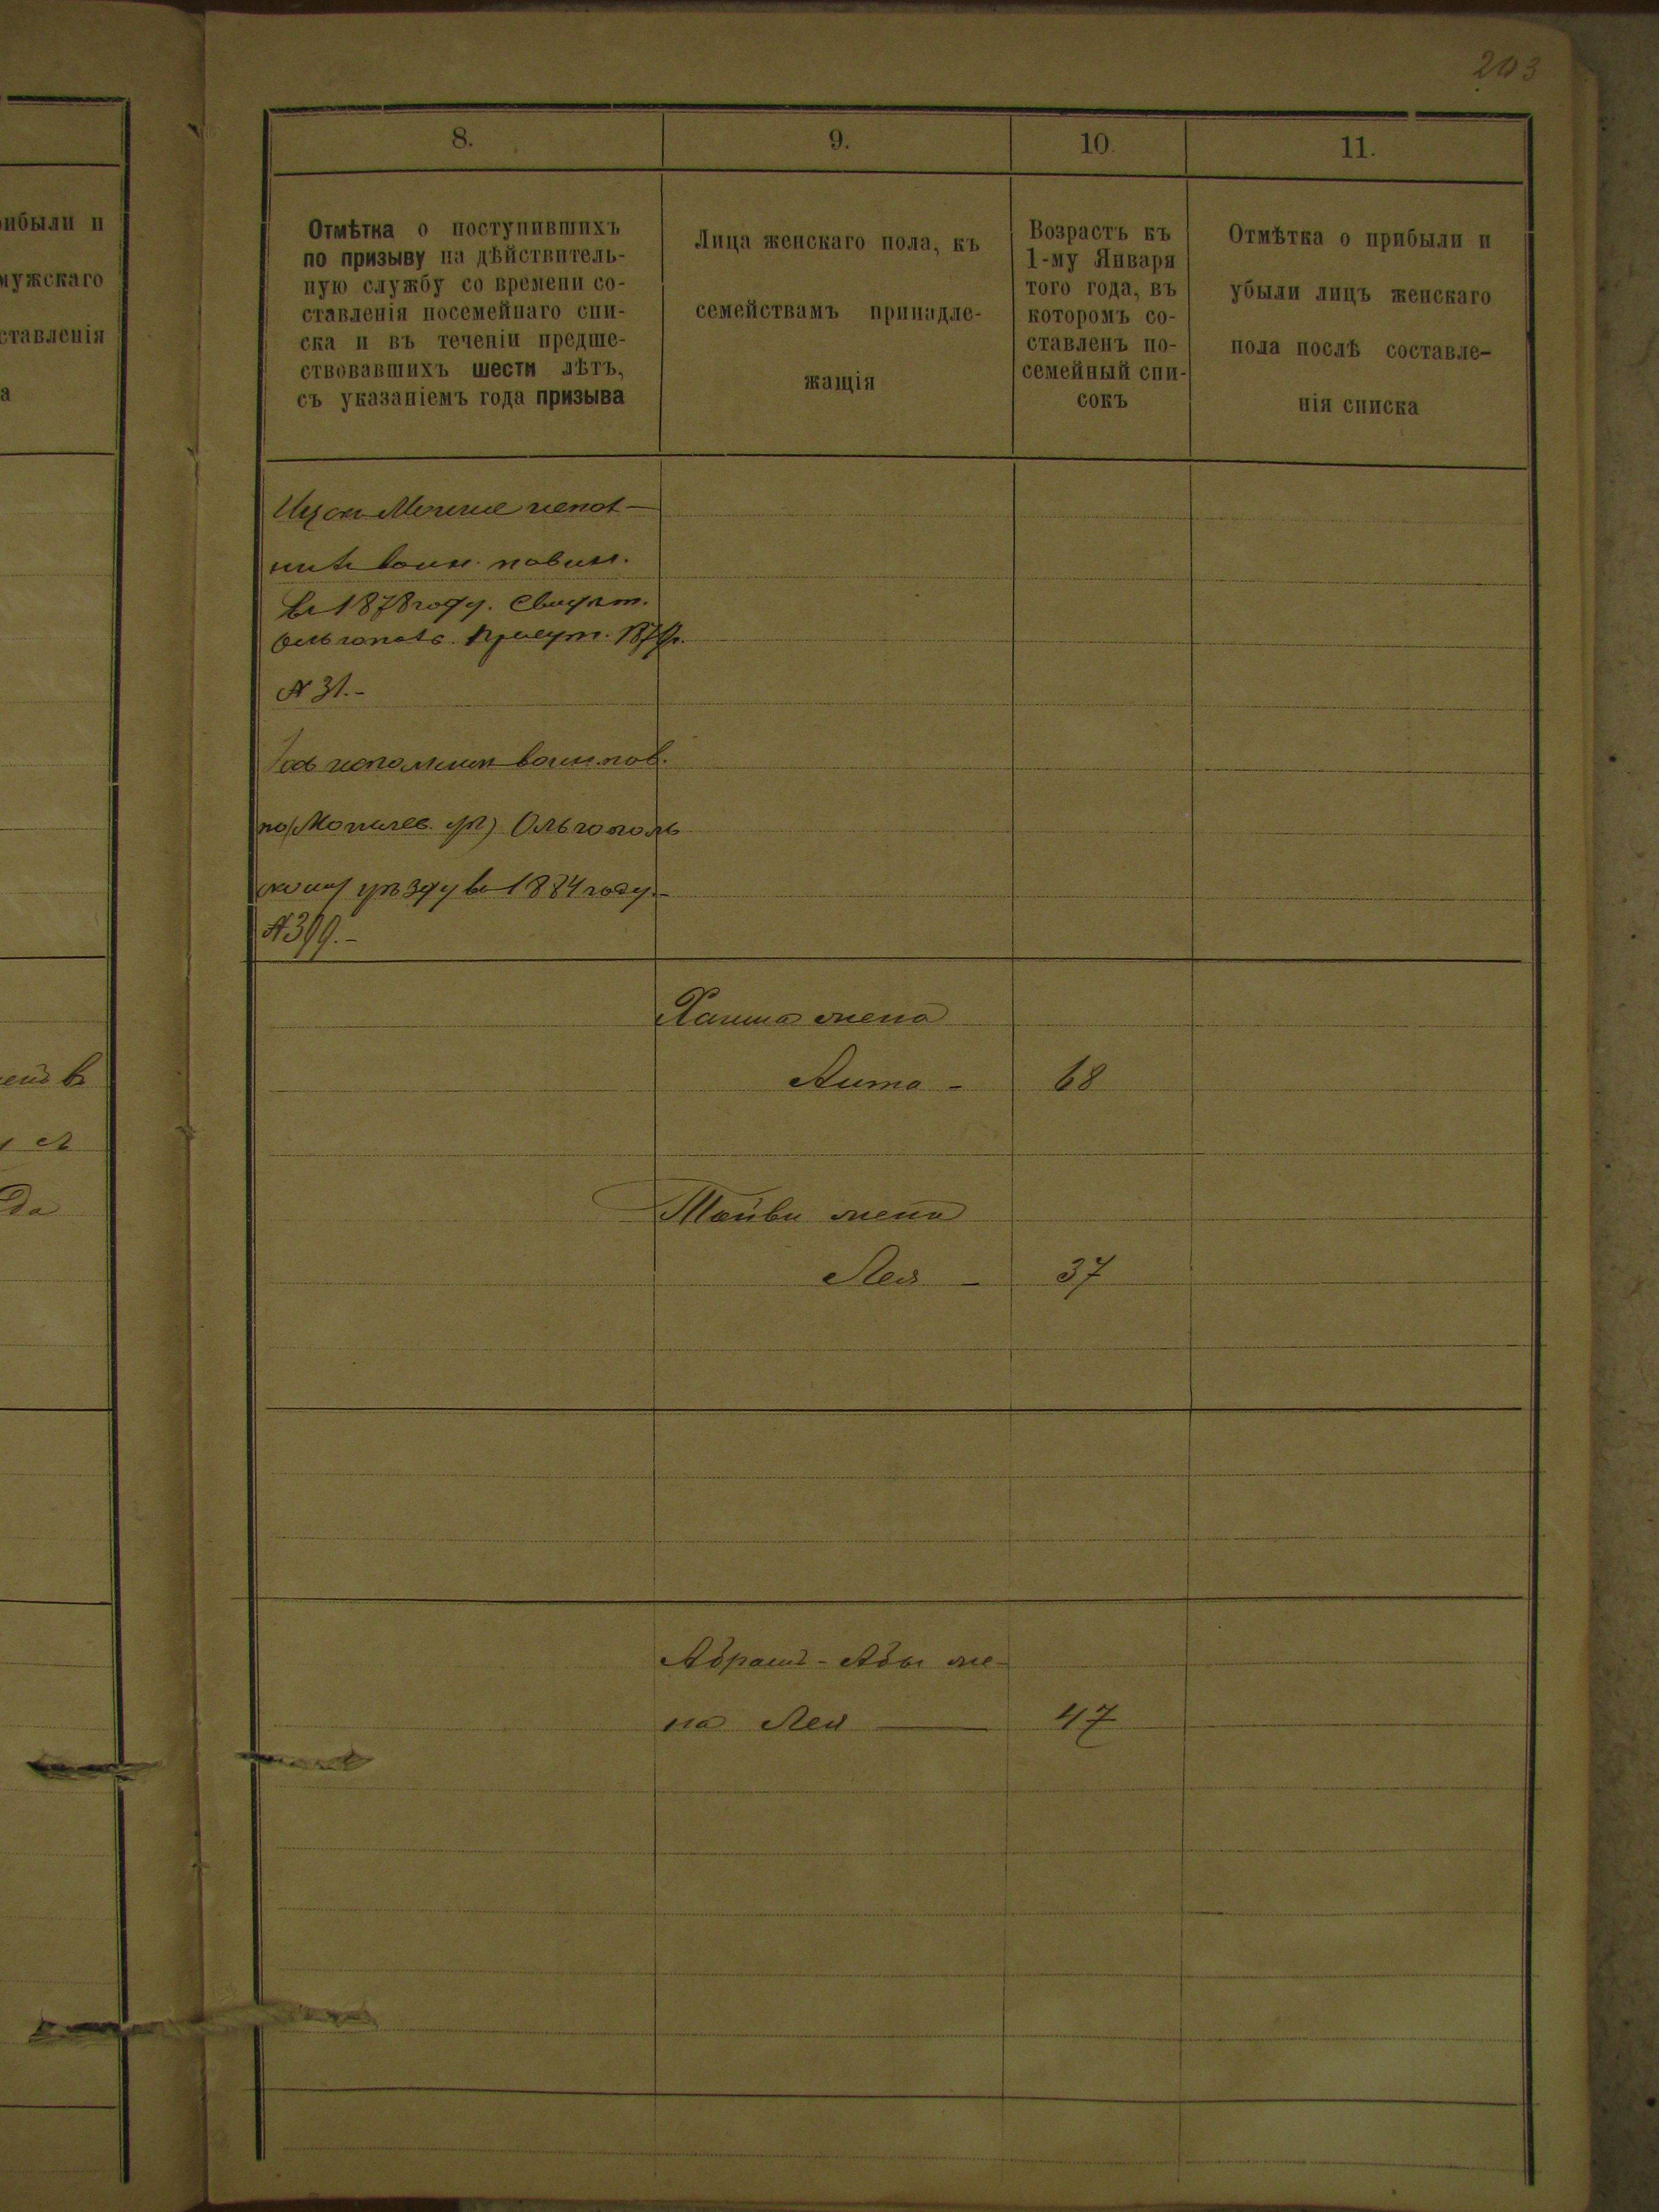 203
8.
9.
10.
11.
Отмѣтка о поступившихъ
по призыву на дѣйствитель-
ную службу со времени со-
ставленія посемейнаго спи-
ска и въ теченіи предше-
ствовавшихъ шести лѣтъ,
съ указаніемъ года призыва
Лица женскаго пола, къ
семействамъ принадле-
жащія
Возрастъ къ
1-му Января
того года, въ
которомъ со-
ставленъ по-
семейный спи-
сокъ
Отмѣтка о прибыли и
убыли лицъ женскаго
пола послѣ составле-
нія списка
рибыли и
мужскаго
ставленія
а
воин. повин.
въ 1878 году. Свидѣт.
Присут.
№ 31.-
воин. пов.
по (Могилев. ) Ольгополь
скому уѣзду въ 1884 году.-
№ 399.-
жена
68
жена
Лея - 37
Абрамъ-Абы же-
на Лея — 47
да